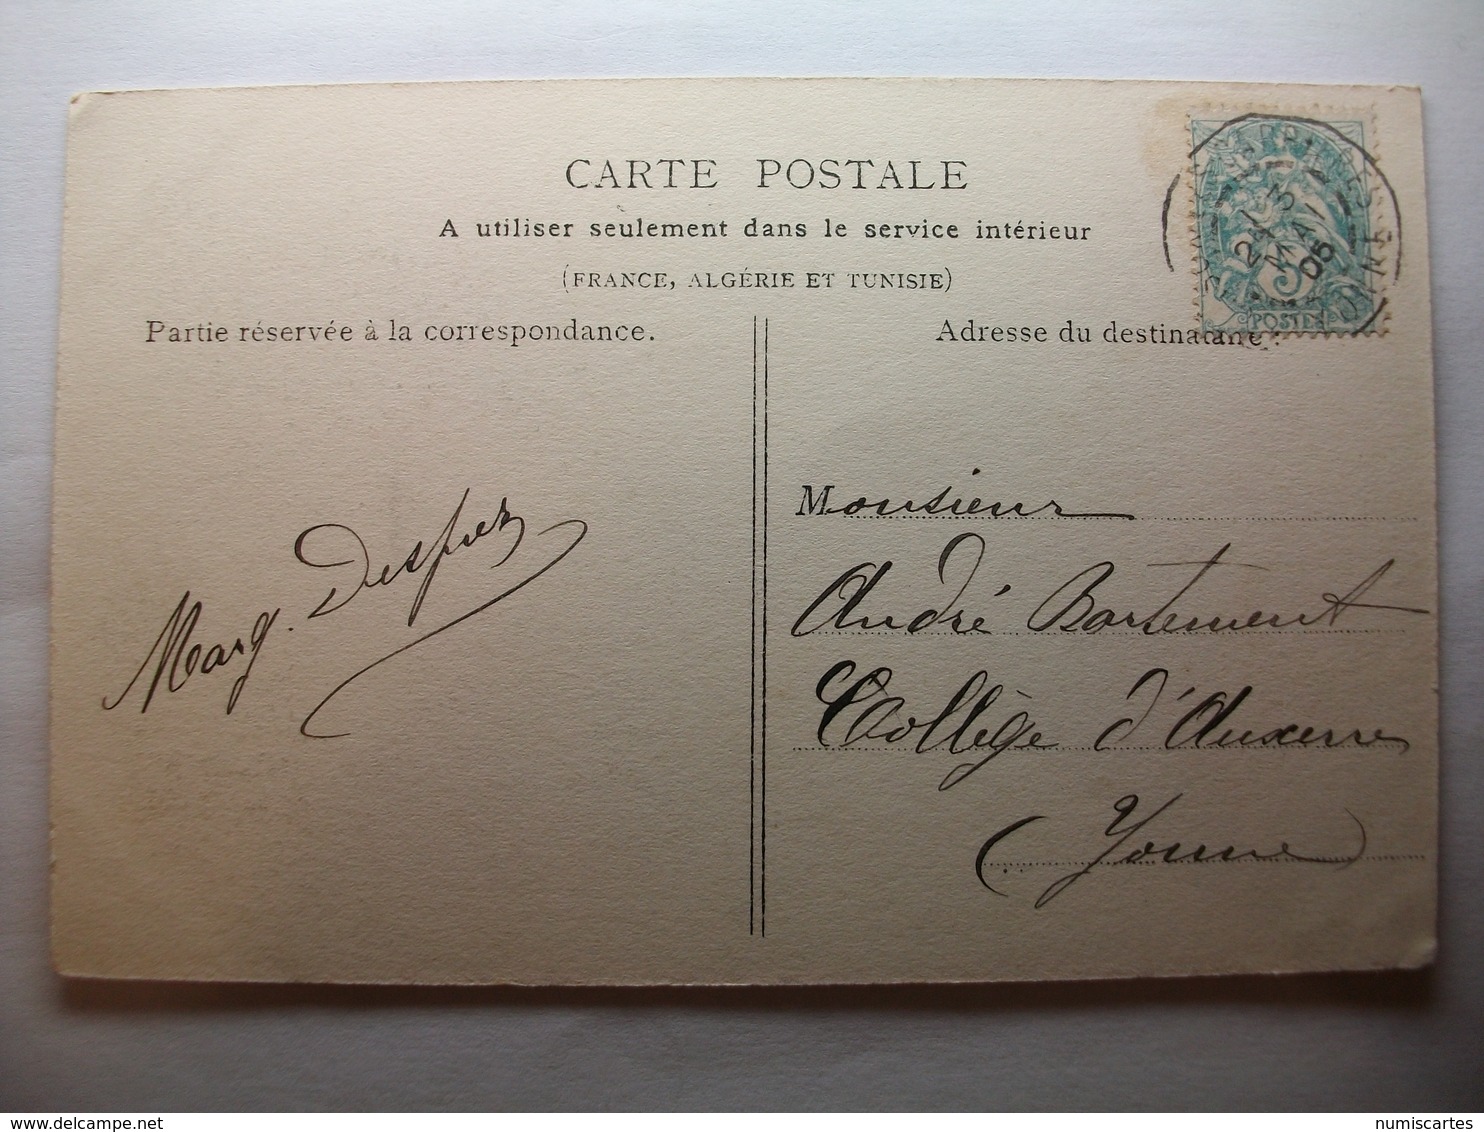 CARTE POSTALE
A utiliser seulement dans le service intérieur
(FRANCE, ALGÉRIE ET TUNISIE)
Partie réservée à la correspondance.
Adresse du destinataire :
5
POSTES
3
MAI
05
Marg. Desprez
Monsieur
André Bortement
Collège d'Auxerre
(Yonne)
delcampe.net
numiscartes